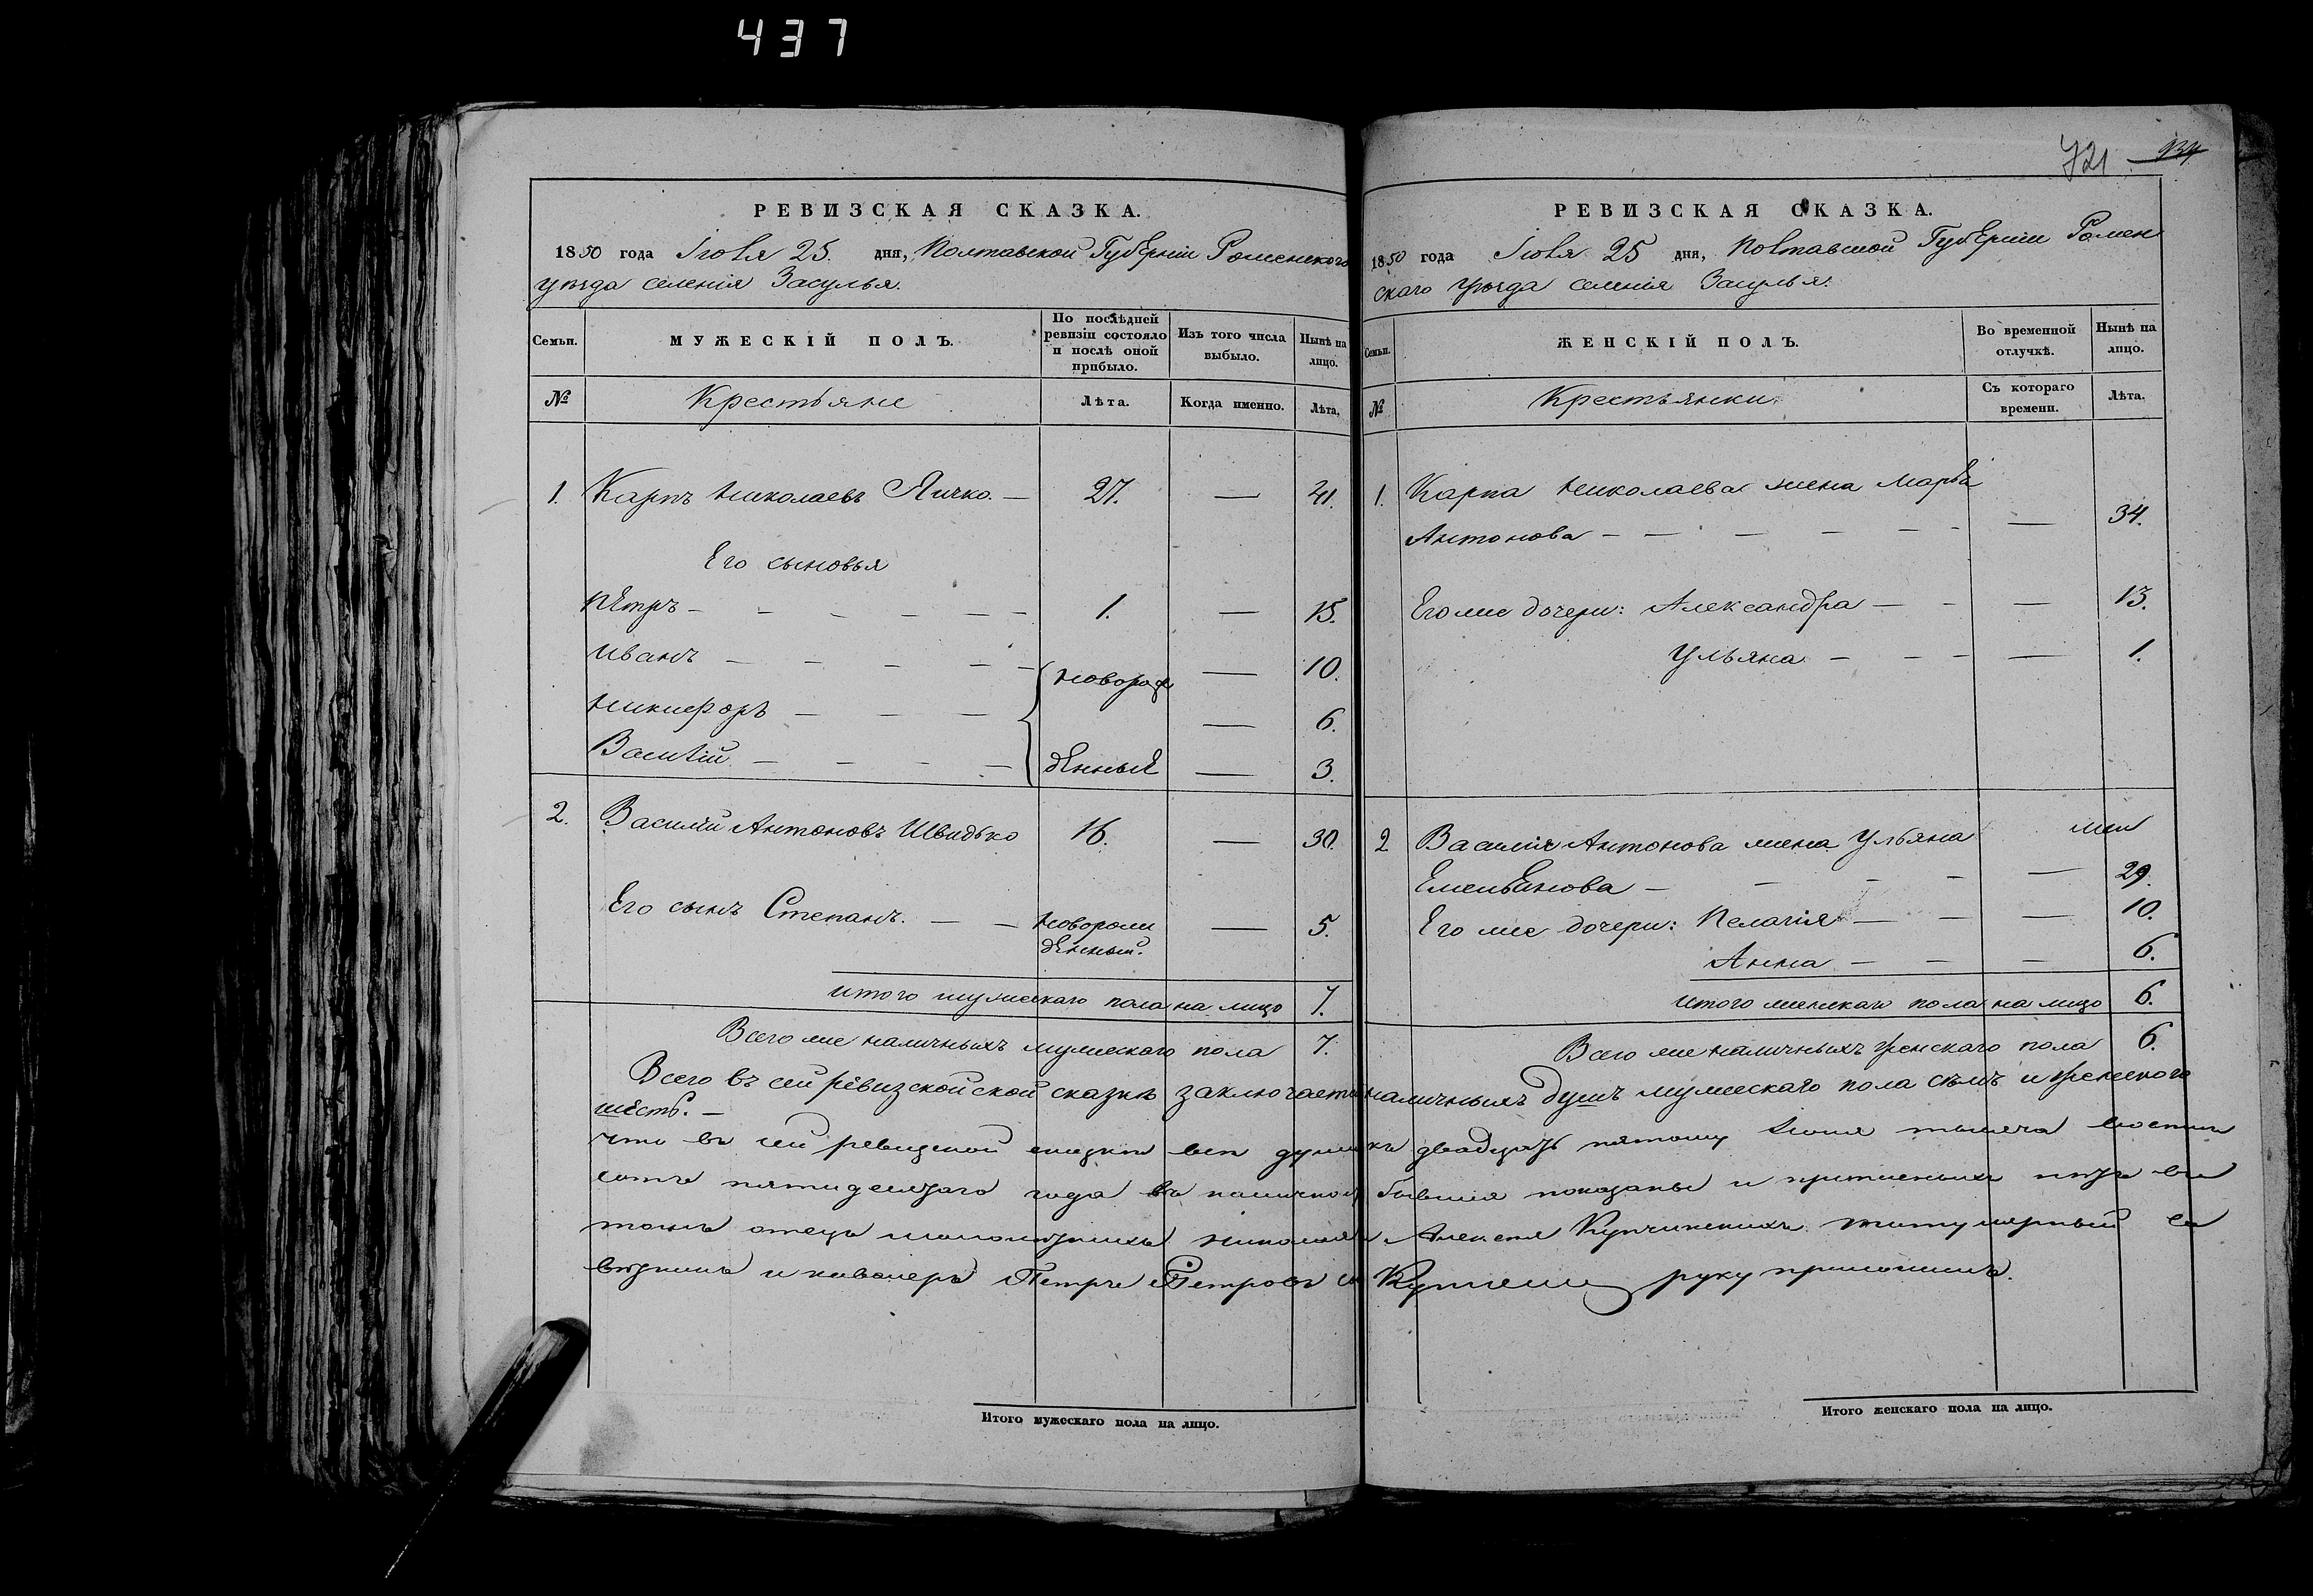 437
721 934
РЕВИЗСКАЯ СКАЗКА.
1850 года Іюля 25. дня, Полтавской Губерніи Роменского
уѣзда селенія Засулья.
Семьи. МУЖЕСКІЙ ПОЛЪ. По послѣдней ревизіи состояло и послѣ оной прибыло. Изъ того числа выбыло. Нынѣ на лицо.
№ Крестьяне Лѣта. Когда именно. Лѣта.
1. Карпъ Николаевъ Яичко. — 27. — 41.
Его сыновья
Петръ — — — — — — 1. — 15.
Иванъ — — — — — новорож — 10.
Никифоръ — — — — 6.
Василій — — — — денные — 3.
2. Василій Антоновъ Швидько 16. — 30.
Его сынъ Степанъ. — — новорож — 5.
денный.
итого мужескаго пола на лицо 7.
Всего же наличныхъ мужескаго пола 7.
РЕВИЗСКАЯ СКАЗКА.
1850 года Іюля 25 дня, Полтавской Губерніи Ромен
скаго уѣзда селенія Засулья.
Семьи. ЖЕНСКІЙ ПОЛЪ. Во временной отлучкѣ. Нынѣ на лицо.
№ Крестьянки. Съ котораго времени. Лѣта.
1. Карпа Николаева жена Марья
Антонова — — — — — — 34.
Его же дочери: Александра — — — 13.
Ульяна — — — — 1.
2 Василія Антонова жена Ульяна
Емельянова — — — — — 29.
Его же дочери: Пелагія — — — 10.
Анна — — — 6.
итого женскаго пола на лицо 6.
Всего же наличныхъ женскаго пола 6.
Всего въ сей ревизскойской сказкѣ заключается наличныхъ душъ мужескаго пола семъ и женского
шесть. —
что въ сей ревизской сказки все души къ двадцать пятому Іюля тысяча восемь
сотъ пятидесятаго года въ наличной бывшия показаны и
отецъ малолѣтнихъ Николая и Алексея титулярный со
вѣтникъ и кавалеръ Петръ Петровъ руку приложилъ.
Итого мужескаго пола на лицо.
Итого женскаго пола на лицо.